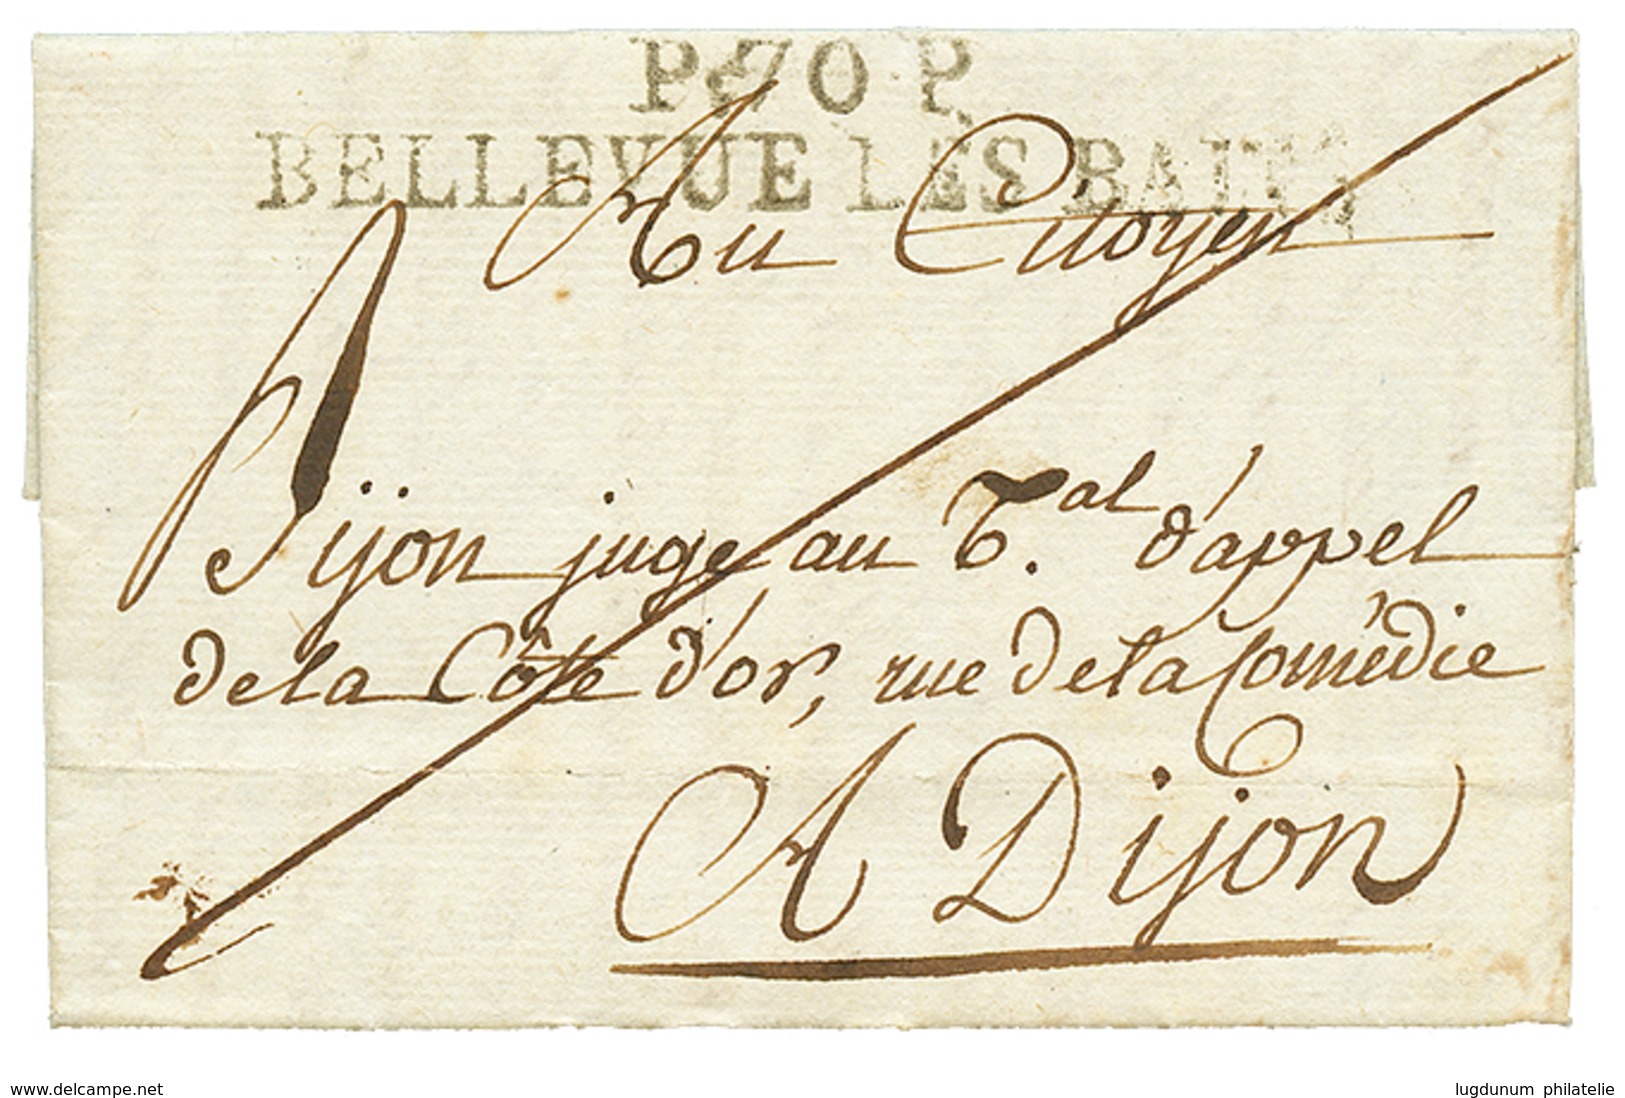 P.70.P.
BELLEVUE LES BAINS
Au Citoyen
Dijon juge au T.al d'appel
de la Côte d'or, rue de la Comédie
A Dijon
www.delcampe.net
lugdunum philatelie